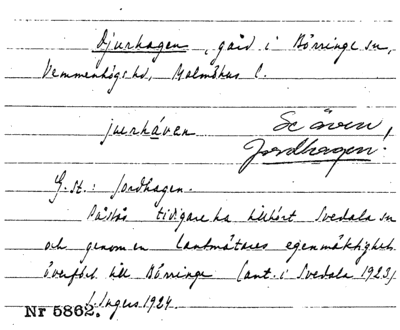 Djurhagen, gård i Börringe sn,
Vemmenhögs hd, Malmöhus l.
juerháven
Se även
Jordhagen.
G. st.: Jordhagen.
Påstås tidigare ha tillhört Svedala sn
och genom en lantmätares egenmäktighet
överförts till Börringe (ant. i Svedala 1923)
Ingers 1924.
Nr 5862.